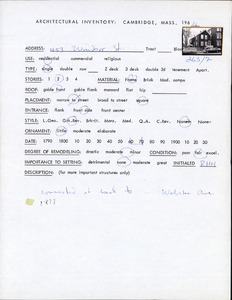 ARCHITECTURAL INVENTORY: CAMBRIDGE, MASS. 196
ADDRESS: Windsor St Tract Block
263/2
USE: residential commercial religious
TYPE: single double row 2 deck 3 deck double 3d Tenement Apart.
STORIES: 1 2 3 4 MATERIAL: Frame Brick Mod. compo
ROOF: gable front gable flank mansard flat hip
PLACEMENT: narrow to street broad to street square
ENTRANCE: flank front side
STYLE: L.Geo. Gk.Rev. Brkttl. Mans. Med. Q.A. C.Rev. Nondes None
ORNAMENT: little moderate elaborate
DATE: 1790 1800 10 20 30 40 50 60 70 80 90 1900 10 20 30
DEGREE OF REMODELING: drastic moderate minor CONDITION: poor fair exc.
IMPORTANCE TO SETTING: detrimental none moderate great INITIALED
DESCRIPTION: (for more important structures only)
connected at back to Webster Ave
1877